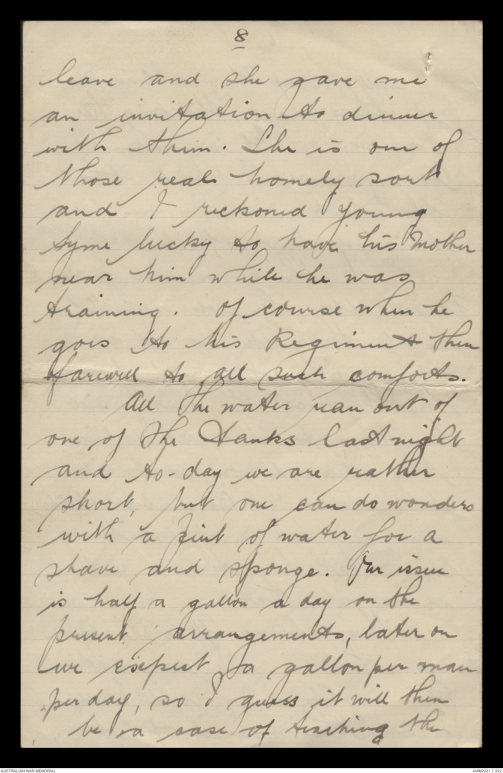 8
leave and she gave me
an invitation to dinner
with them. She is one of
those real homely sort
and I reckoned young
Syme lucky to have his Mother
near him while he was
training. Of course when he
goes to his Regiment then
farewell to all such comforts.
All the water ran out of
one of the tanks last night
and to-day we are rather
short, but one can do wonders
with a pint of water for a
shave and sponge. Our issue
is half a gallon a day on the
present arrangements, later on
we expect a gallon per man
per day, so I guess it will then
be a case of teaching the
AUSTRALIAN WAR MEMORIAL